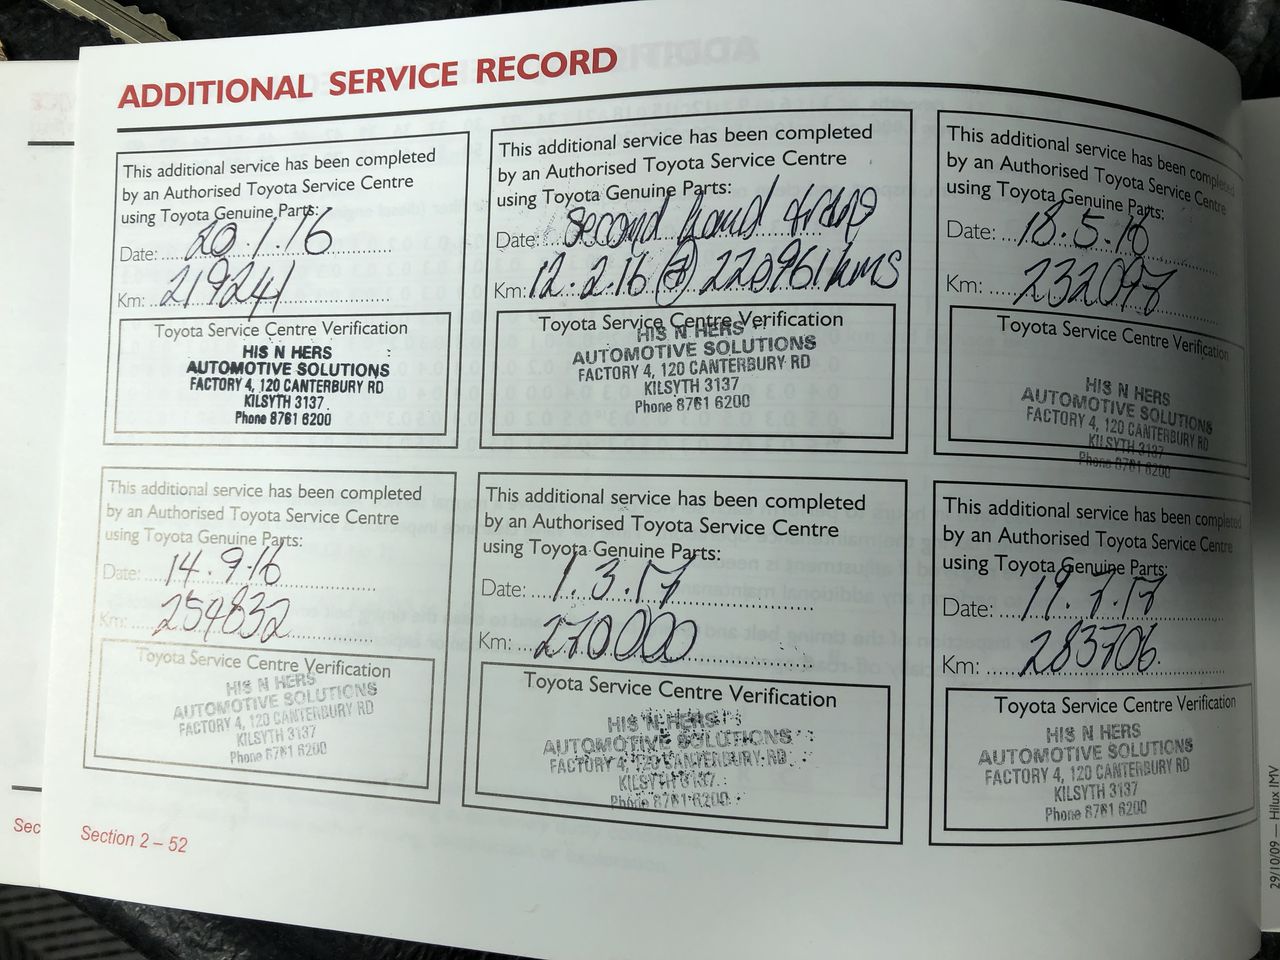 ADDITIONAL SERVICE RECORD
This additional service has been completed
by an Authorised Toyota Service Centre
using Toyota Genuine Parts:
Date: 20.1.16
Km: 219241
Toyota Service Centre Verification
HIS N HERS
AUTOMOTIVE SOLUTIONS
FACTORY 4, 120 CANTERBURY RD
KILSYTH 3137
Phone 8761 6200
This additional service has been completed
by an Authorised Toyota Service Centre
using Toyota Genuine Parts:
Date: Second hand
Km: 12.2.16 @ 220961kms
Toyota Service Centre Verification
HIS N HERS
AUTOMOTIVE SOLUTIONS
FACTORY 4, 120 CANTERBURY RD
KILSYTH 3137
Phone 8761 6200
This additional service has been completed
by an Authorised Toyota Service Centre
using Toyota Genuine Parts:
Date: 18.5.16
Km: 232097
Toyota Service Centre Verification
HIS N HERS
AUTOMOTIVE SOLUTIONS
FACTORY 4, 120 CANTERBURY RD
KILSYTH 3137
Phone 8761 6200
This additional service has been completed
by an Authorised Toyota Service Centre
using Toyota Genuine Parts:
Date: 14.9.16
Km: 254832
Toyota Service Centre Verification
HIS N HERS
AUTOMOTIVE SOLUTIONS
FACTORY 4, 120 CANTERBURY RD
KILSYTH 3137
Phone 8761 6200
This additional service has been completed
by an Authorised Toyota Service Centre
using Toyota Genuine Parts:
Date: 1.3.17
Km: 270000
Toyota Service Centre Verification
HIS N HERS
AUTOMOTIVE SOLUTIONS
FACTORY 4, 120 CANTERBURY RD
KILSYTH 3137
Phone 8761 6200
This additional service has been completed
by an Authorised Toyota Service Centre
using Toyota Genuine Parts:
Date: 19.7.17
Km: 283706
Toyota Service Centre Verification
HIS N HERS
AUTOMOTIVE SOLUTIONS
FACTORY 4, 120 CANTERBURY RD
KILSYTH 3137
Phone 8761 6200
Section 2 – 52
Sec
29/10/09 — Hilux IMV